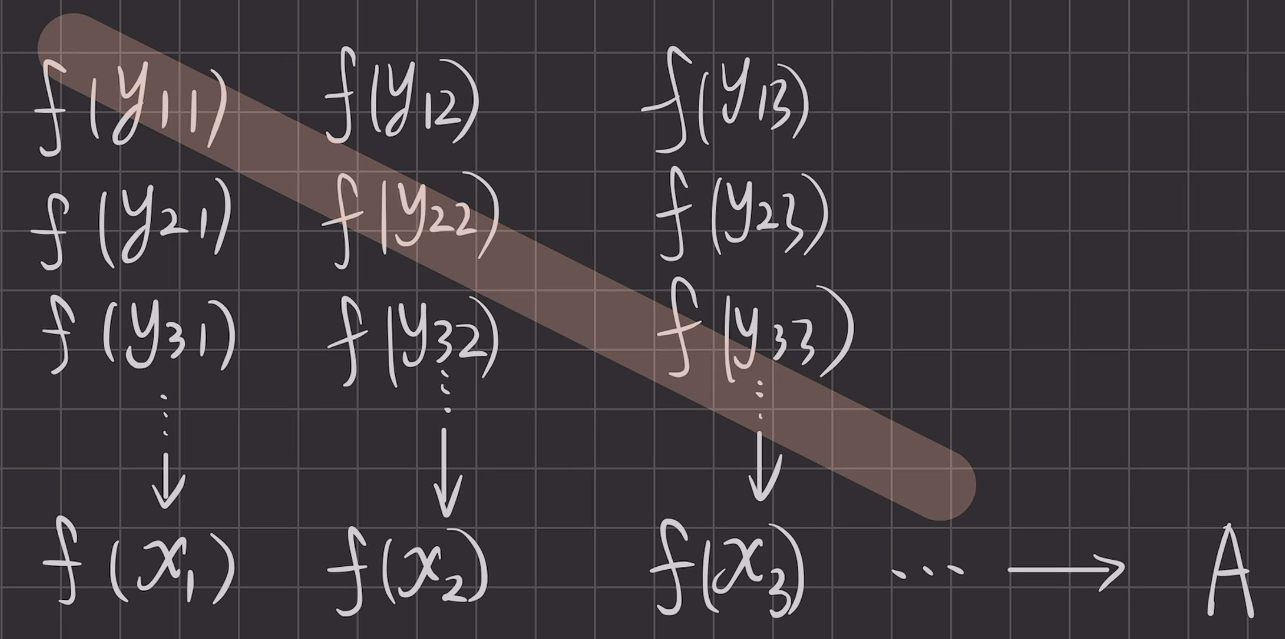 f(y₁₁) f(y₁₂) f(y₁₃)
f(y₂₁) f(y₂₂) f(y₂₃)
f(y₃₁) f(y₃₂) f(y₃₃)
⋮ ⋮ ⋮
↓ ↓ ↓
f(x₁) f(x₂) f(x₃) ⋯ → A